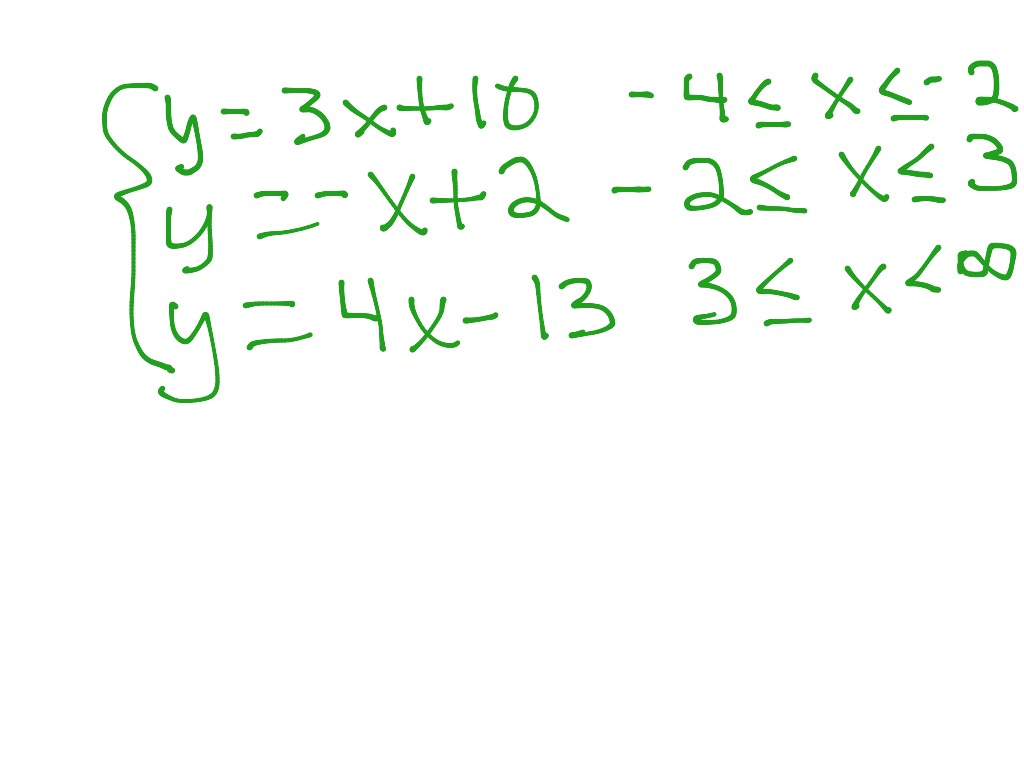 y = 3x+10 -4 ≤ x ≤ -2
y = -x+2 -2 ≤ x ≤ 3
y = 4x-13 3 ≤ x < ∞